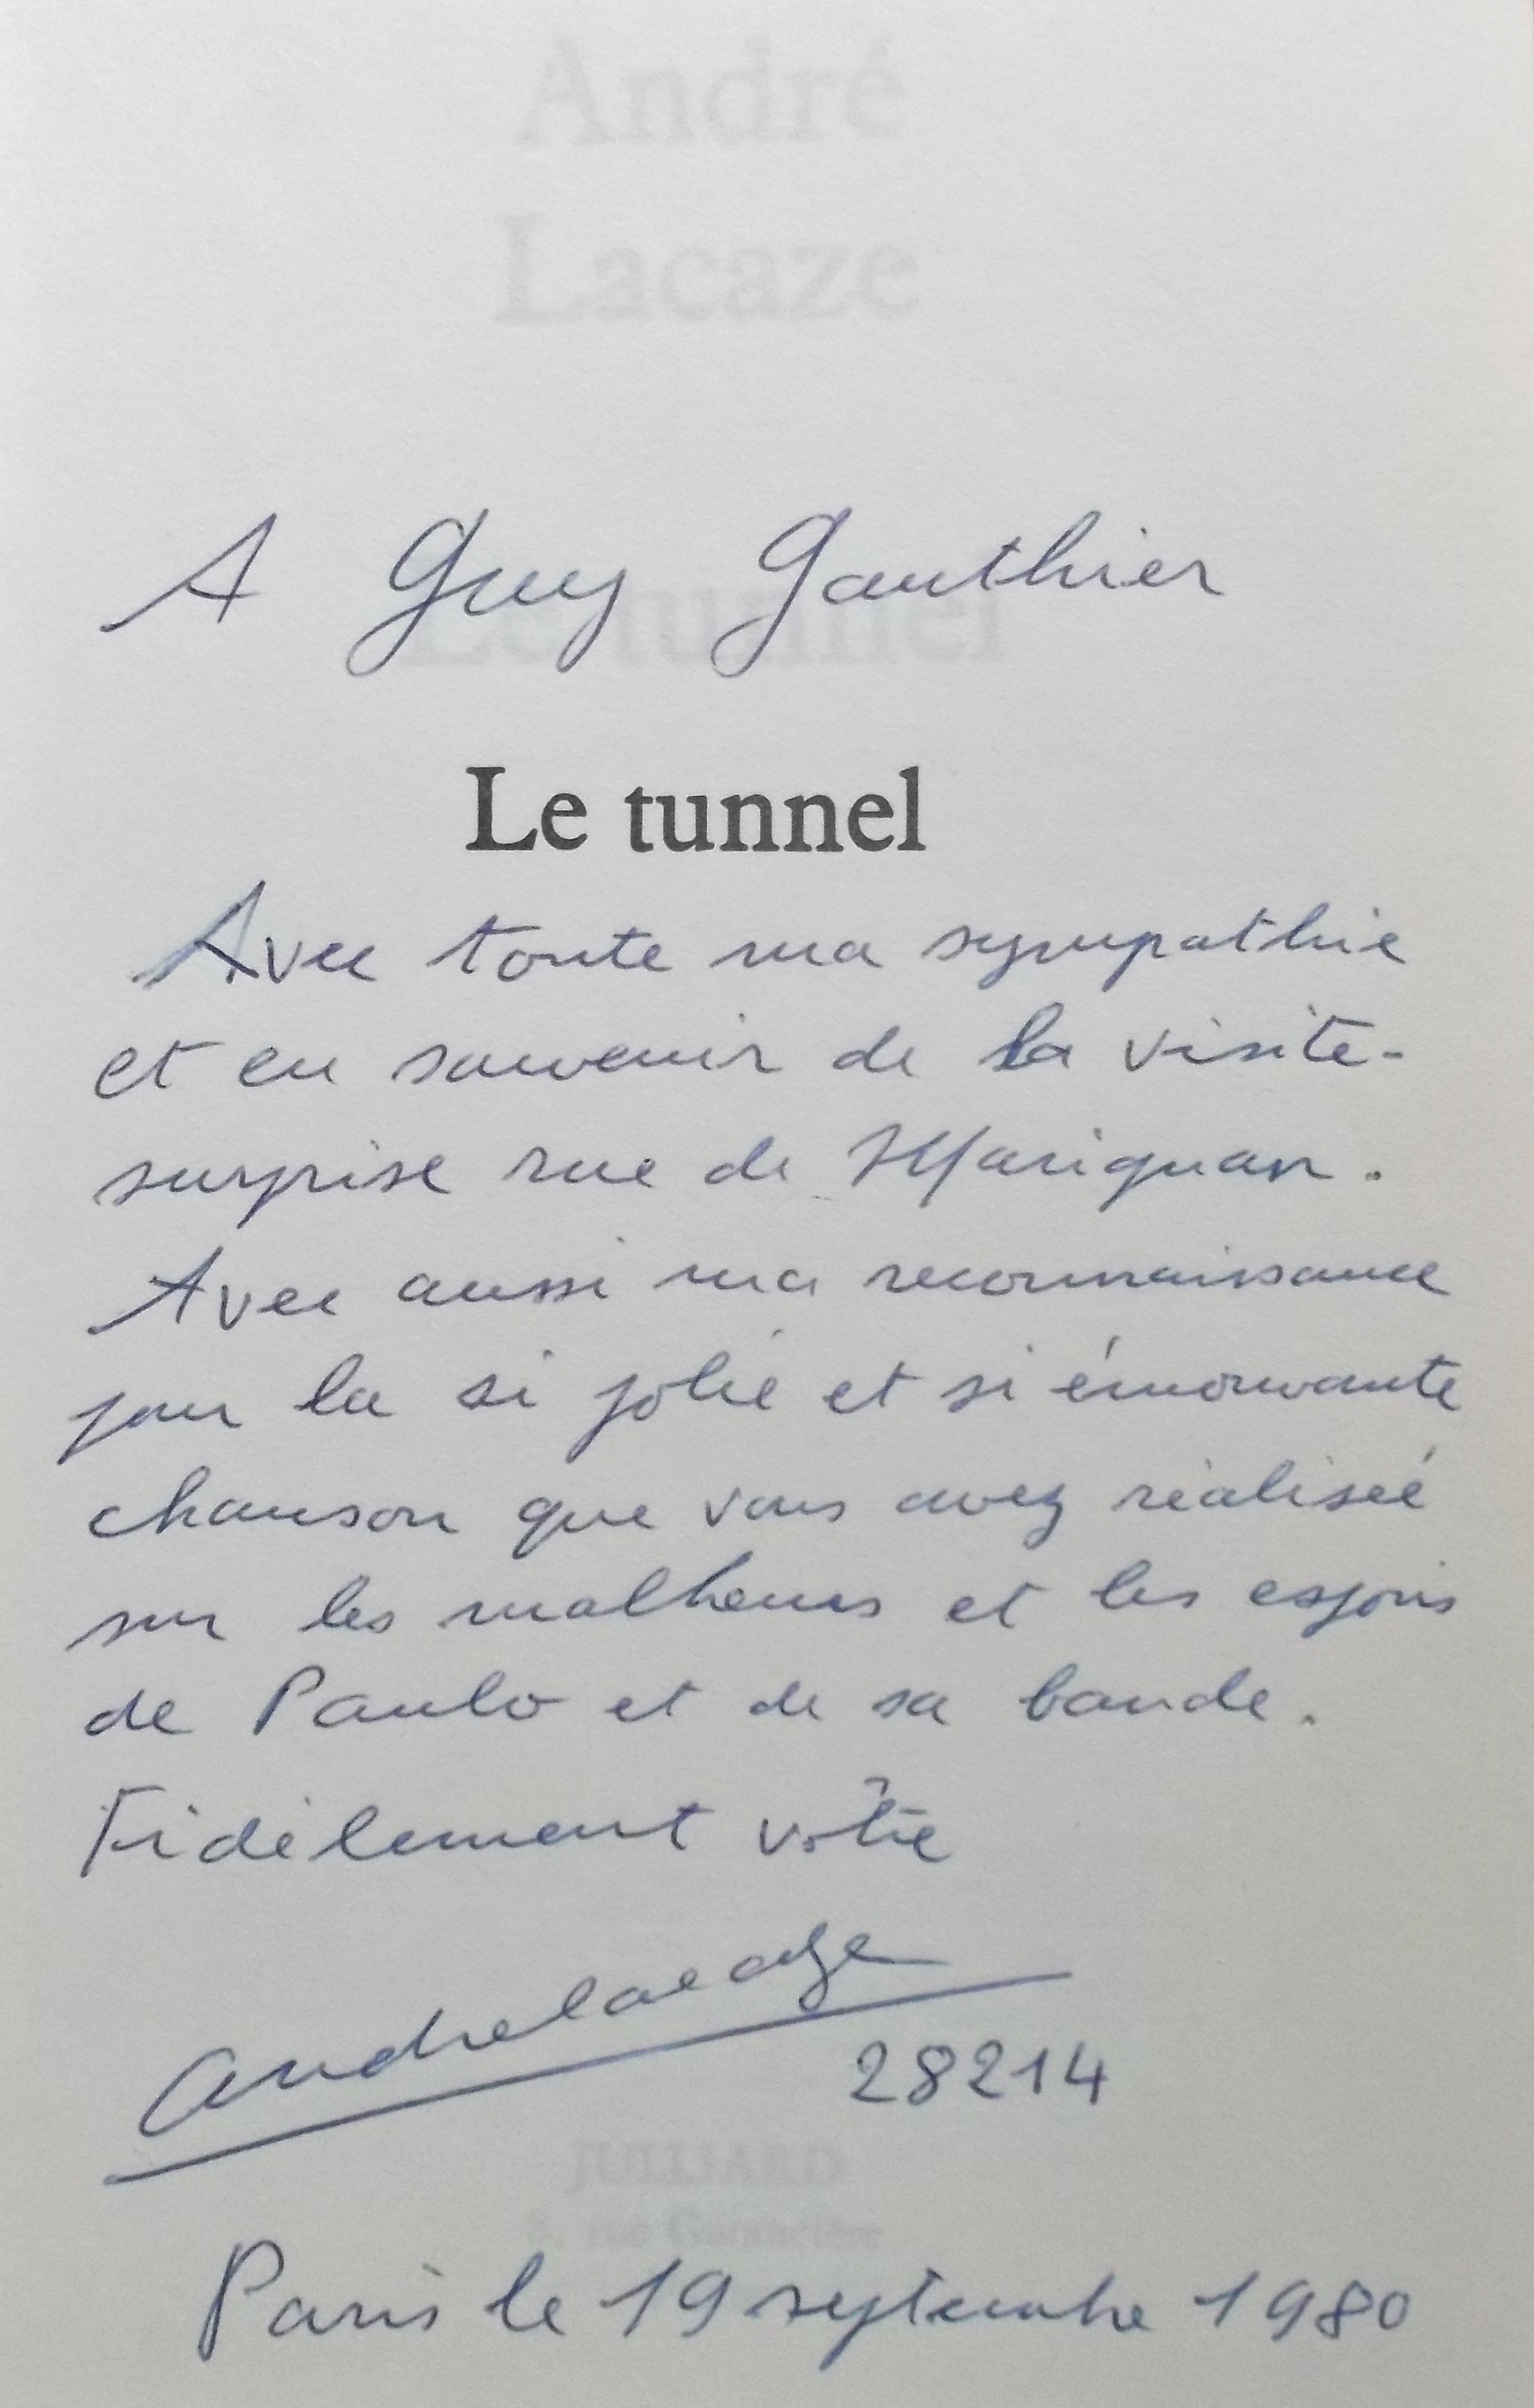 André
Lacaze
A Guy Gauthier
Le tunnel
Le tunnel
Avec toute ma sympathie
et en souvenir de la visite-
surprise rue de Marignan.
Avec aussi ma reconnaissance
pour la si jolie et si émouvante
chanson que vous avez réalisée
sur les malheurs et les espoirs
de Paulo et de sa bande.
Fidèlement vôtre
andrelacaze
28214
JULLIARD
8, rue Garancière
Paris le 19 septembre 1980